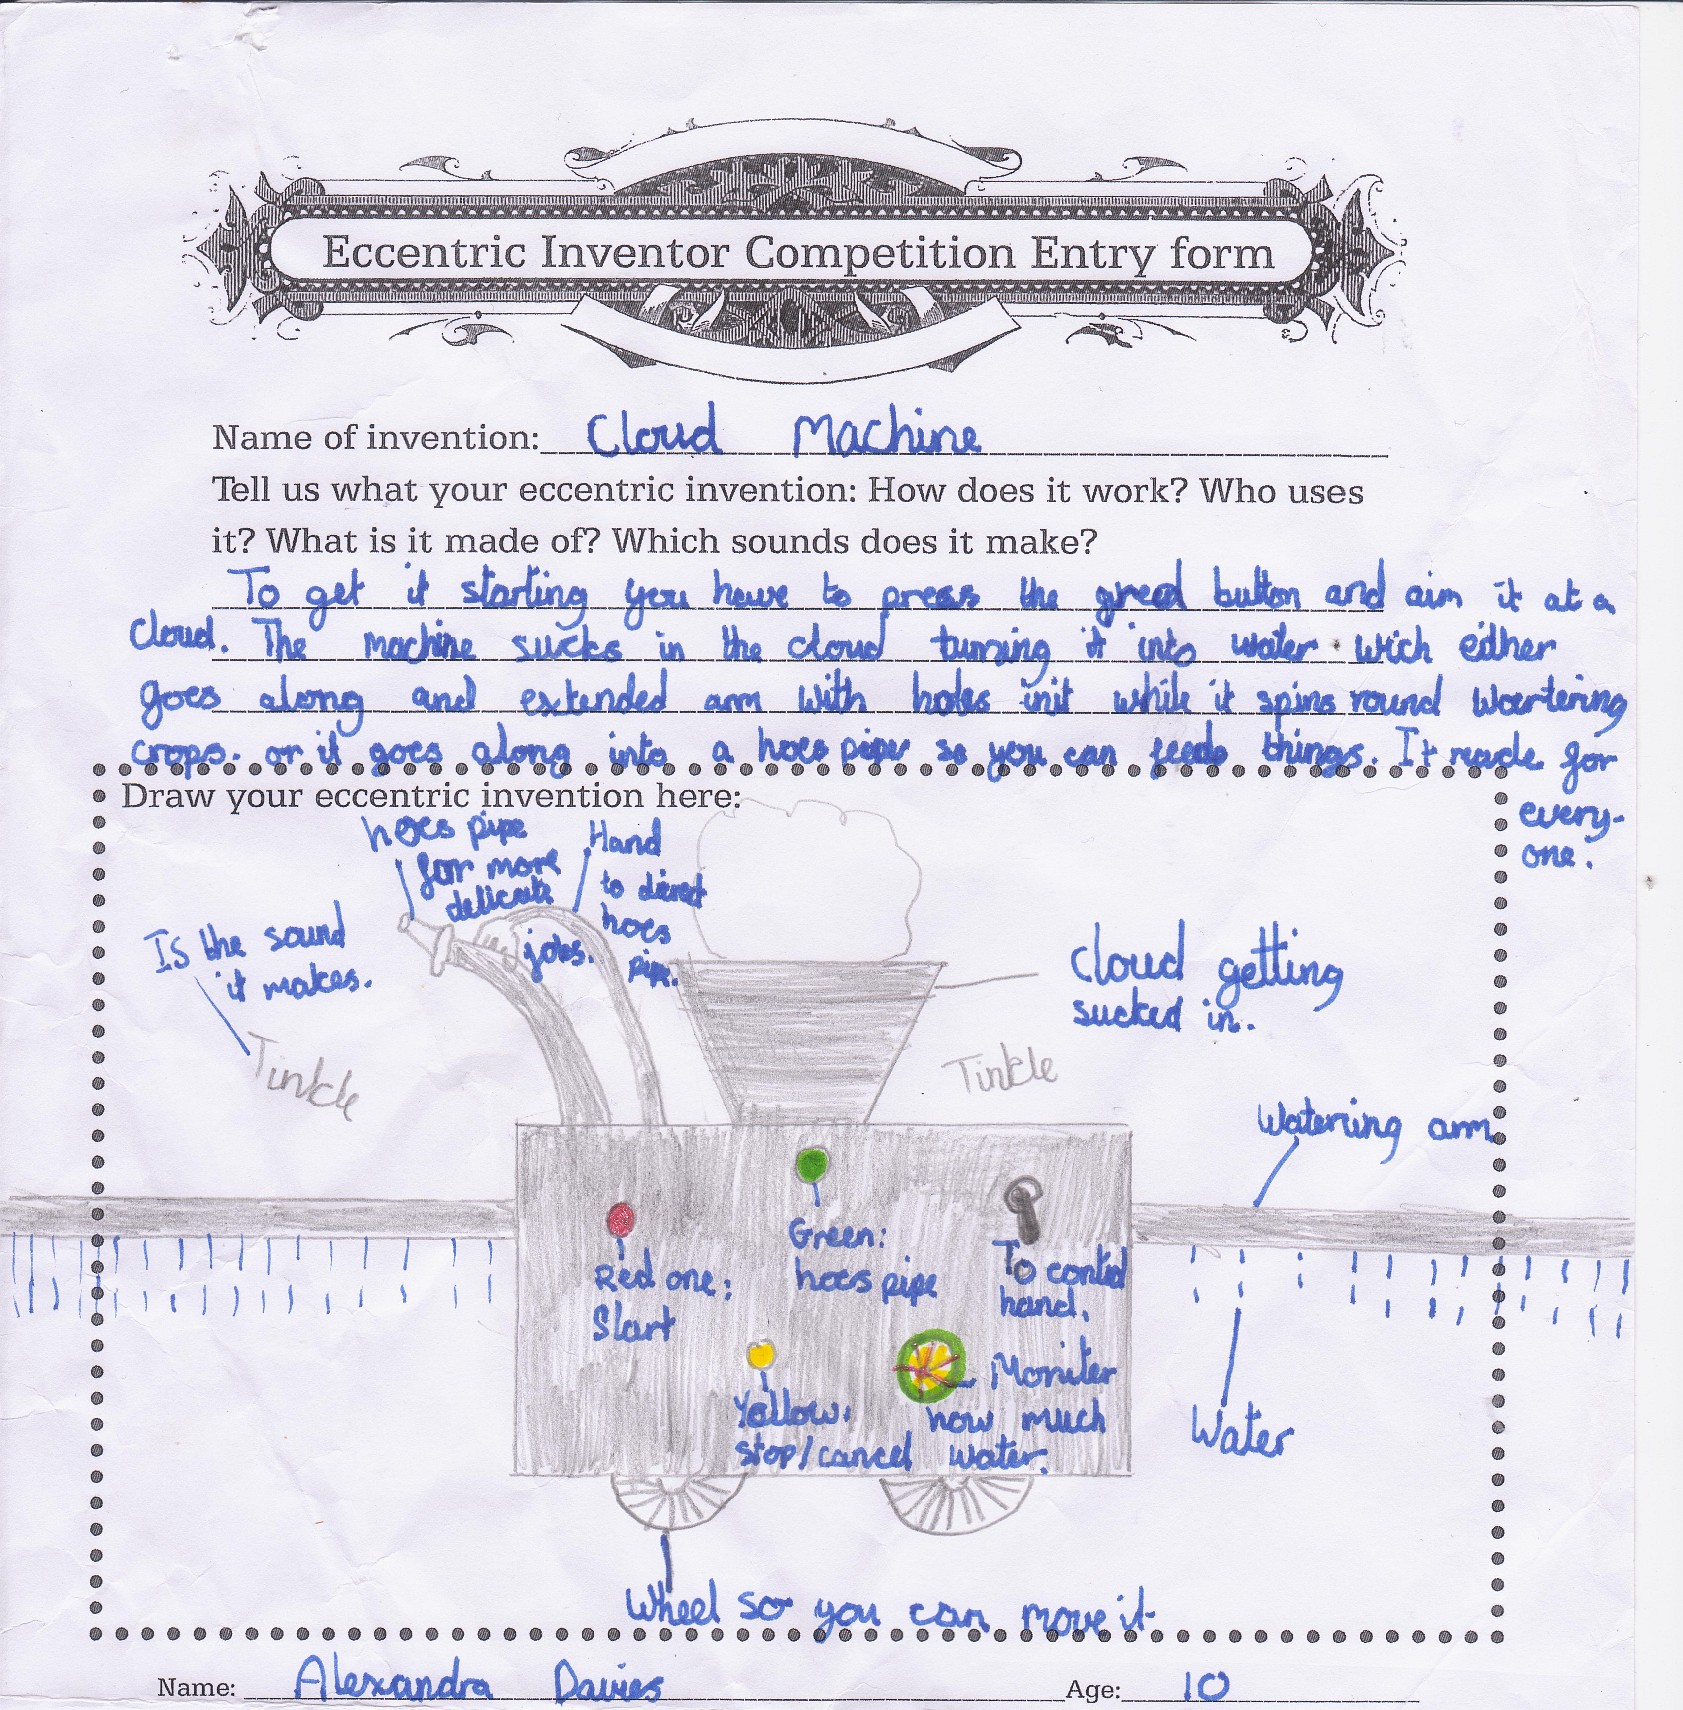 Eccentric Inventor Competition Entry form
Name of invention: Cloud Machine
Tell us what your eccentric invention: How does it work? Who uses
it? What is it made of? Which sounds does it make?
To get it starting you have to press the button and aim it at a
cloud. The machine sucks in the cloud turning it into water wich either
goes along and extended arm with holes init while it spins round woartering
crops. or it goes along into a hoes pipe so you can feeds things. It made for
every-
one.
Draw your eccentric invention here:
hoes pipe
for more
delicate
jobs.
Hand
to direct
hoes
pipe.
Is the sound
it makes.
Tinkle
cloud getting
sucked in.
Tinkle
Watering arm
Green:
hoes pipe
Red one:
Start
To control
hand.
Moniter
how much
water.
Yellow:
stop/cancel
Water
Wheel so you can move it
Name: Alexandra Davies Age: 10